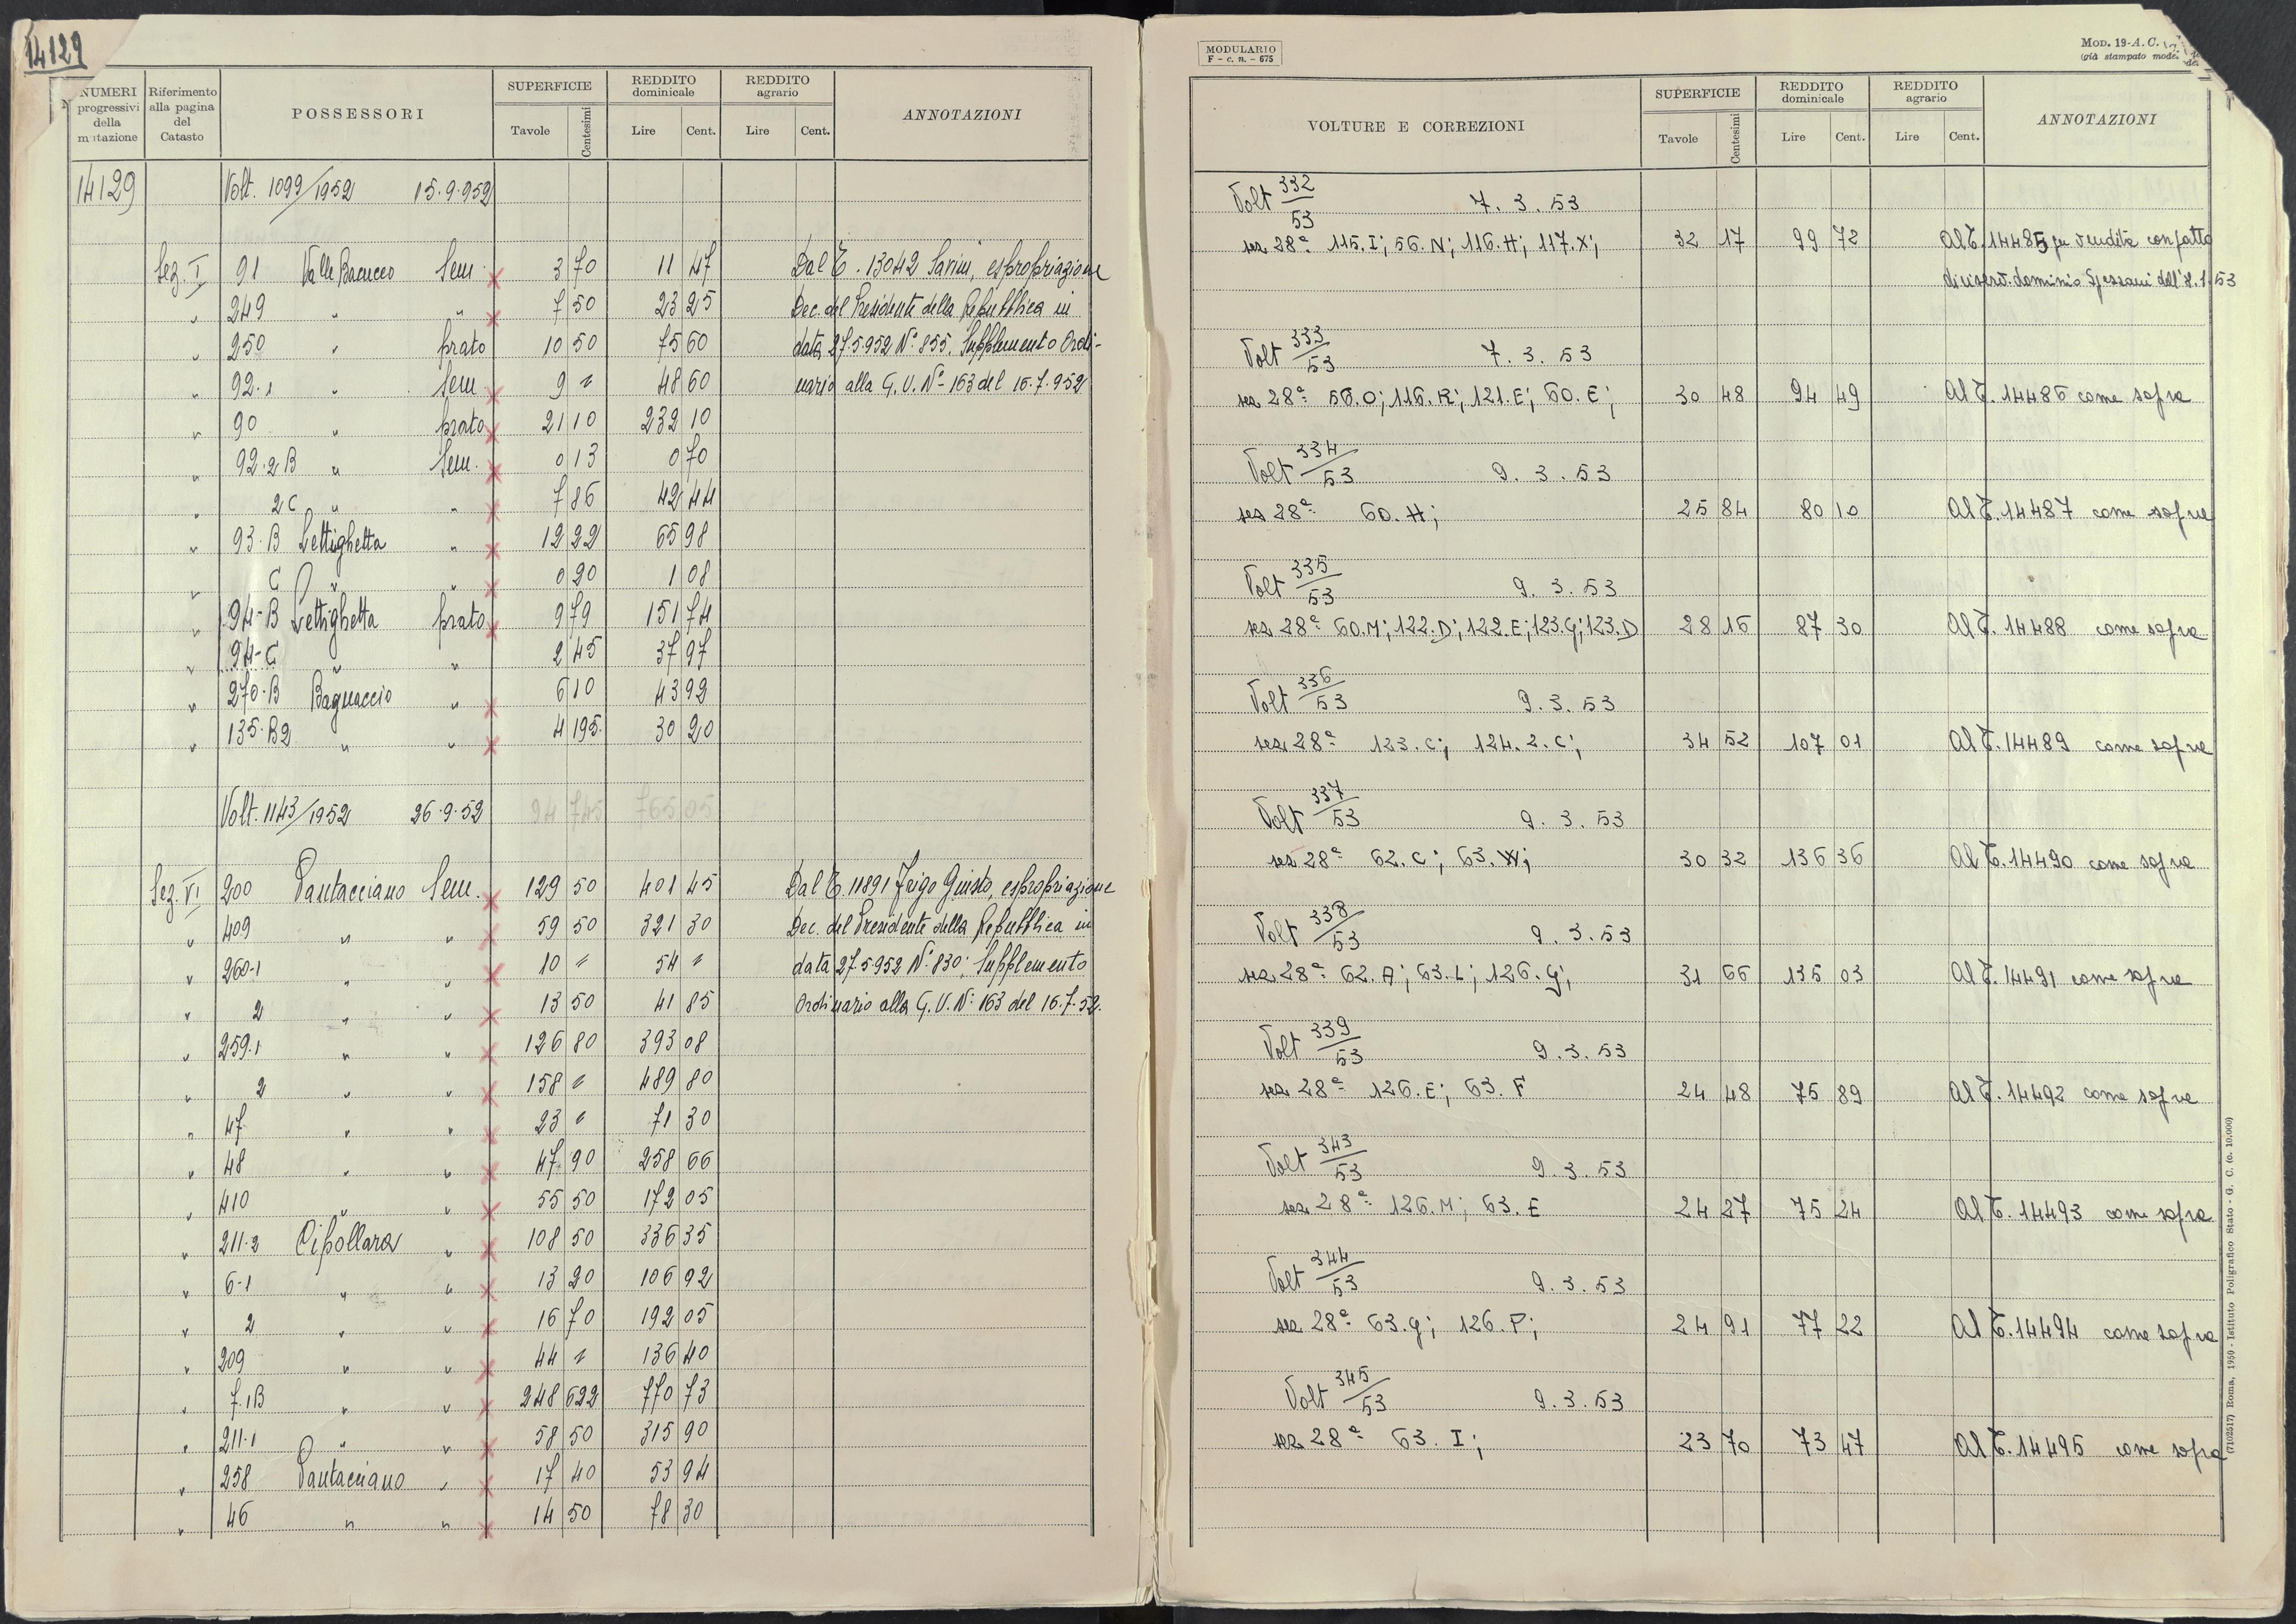 14129
NUMERI progressivi della mutazione
Riferimento alla pagina del Catasto
POSSESSORI
SUPERFICIE
Tavole Centesimi
REDDITO dominicale
Lire Cent.
REDDITO agrario
Lire Cent.
ANNOTAZIONI
14129 Volt. 1099/1952 15.9.952
Sez. I 91 Valle Bacucco Sem. 3 70 11 47 Dal T. 13042 Savini, espropriazione
" 249 " " 7 50 23 25 Dec. del Presidente della Repubblica in
" 250 " prato 10 50 75 60 data 27.5.952 N° 855. Supplemento Ordi-
" 92.1 " Sem 9 " 48 60 nario alla G.U. N° 163 del 16.7.952
" 90 " prato 21 10 232 10
" 92.2B " Sem. 0 13 0 70
" 2C " " 7 86 42 44
" 93.B Lettighetta " 12 22 65 98
" C " " 0 20 1 08
" 94-B Lettighetta prato 9 79 151 74
" 94-C " " 2 45 37 97
" 270.B Bagnaccio " 6 10 43 92
" 135.B2 " " 4 195 30 20
Volt. 1143/1952 26.9.52 94 745 765 05
Sez. VI 200 Pantacciano Sem. 129 50 401 45 Dal T. 11891 Frigo Giusto, espropriazione
" 409 " " 59 50 321 30 Dec. del Presidente della Repubblica in
" 260-1 " " 10 " 54 " data 27.5.952 N° 830; Supplemento
" 2 " " 13 50 41 85 Ordinario alla G.U. N° 163 del 16.7.52.
" 259.1 " " 126 80 393 08
" 2 " " 158 " 489 80
" 47 " " 23 " 71 30
" 48 " " 47 90 258 66
" 410 " " 55 50 172 05
" 211.2 Cipollara " 108 50 336 35
" 6-1 " " 13 20 106 92
" 2 " " 16 70 192 05
" 209 " " 44 " 136 40
" 7.1B " " 248 622 770 73
" 211.1 " " 58 50 315 90
" 258 Pantacciano " 17 40 53 94
" 46 " " 14 50 78 30
MODULARIO
F - c. n. - 675
MOD. 19-A. C.
(già stampato mode
VOLTURE E CORREZIONI
SUPERFICIE
Tavole Centesimi
REDDITO dominicale
Lire Cent.
REDDITO agrario
Lire Cent.
ANNOTAZIONI
Volt 332/53 7.3.53
sez 28ª 115.I; 56.N; 116.H; 117.X; 32 17 99 72 Al T. 14485 per vendita con patto
di riserv. dominio Spezzani dell'8.1.53
Volt 333/53 7.3.53
sez 28ª 56.O; 116.K; 121.E; 60.E; 30 48 94 49 Al T. 14486 come sopra
Volt 334/53 9.3.53
sez 28ª 60.H; 25 84 80 10 Al T. 14487 come sopra
Volt 335/53 9.3.53
sez 28ª 60.M; 122.D; 122.E; 123.G; 123.D 28 16 87 30 Al T. 14488 come sopra
Volt 336/53 9.3.53
sez 28ª 123.C; 124.2.C; 34 52 107 01 Al T. 14489 come sopra
Volt 337/53 9.3.53
sez 28ª 62.C; 63.W; 30 32 136 36 Al T. 14490 come sopra
Volt 338/53 9.3.53
sez 28ª 62.A; 63.L; 126.G; 31 66 135 03 Al T. 14491 come sopra
Volt 339/53 9.3.53
sez 28ª 126.E; 63.F 24 48 75 89 Al T. 14492 come sopra
Volt 343/53 9.3.53
sez 28ª 126.M; 63.E 24 27 75 24 Al T. 14493 come sopra
Volt 344/53 9.3.53
sez 28ª 63.G; 126.P; 24 91 77 22 Al T. 14494 come sopra
Volt 345/53 9.3.53
sez 28ª 63.I; 23 70 73 47 Al T. 14495 come sopra
(7102517) Roma, 1950 - Istituto Poligrafico Stato - G. C. (c. 10.000)